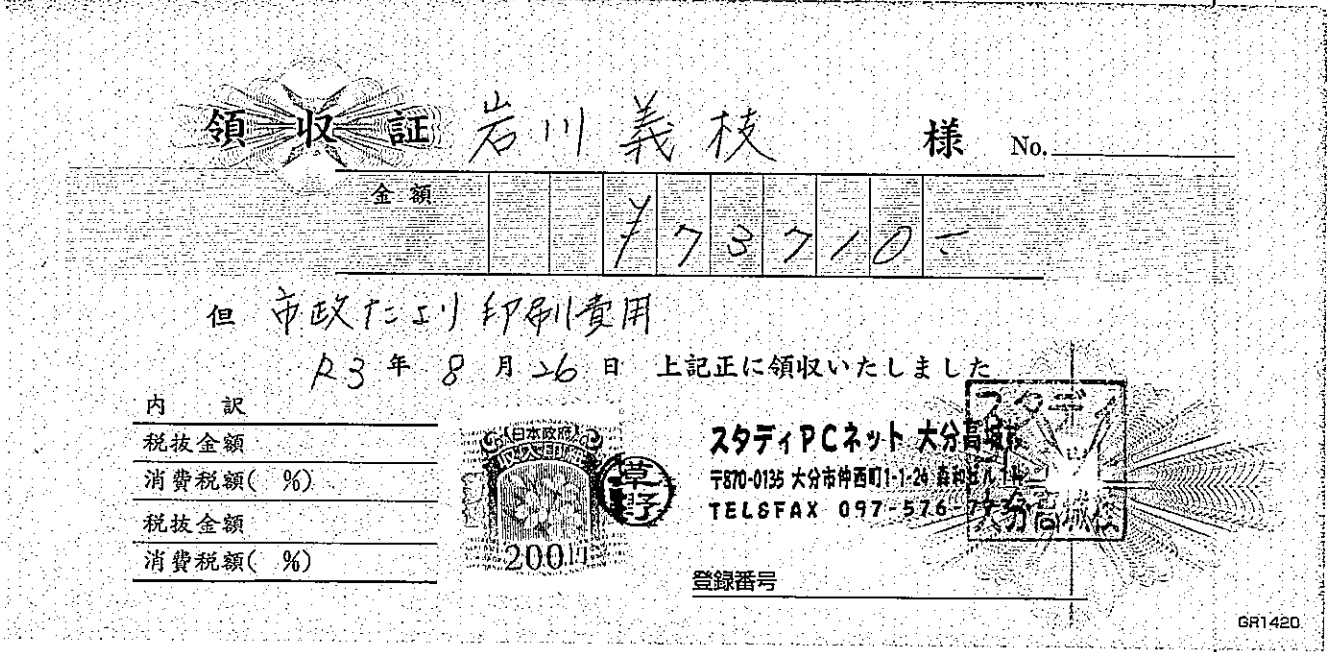 領収証 岩川義枝 様 No.
金額 ¥73710-
但 市政だより印刷費用
R3年8月26日 上記正に領収いたしました
内訳
税抜金額
消費税額( %)
税抜金額
消費税額( %)
日本政府
収入印紙
200円
草野
スタディPCネット 大分高城校
〒870-0135 大分市仲西町1-1-24 森和ビル
TEL&FAX 097-576-
スタディ
大分高城校
登録番号
GR1420